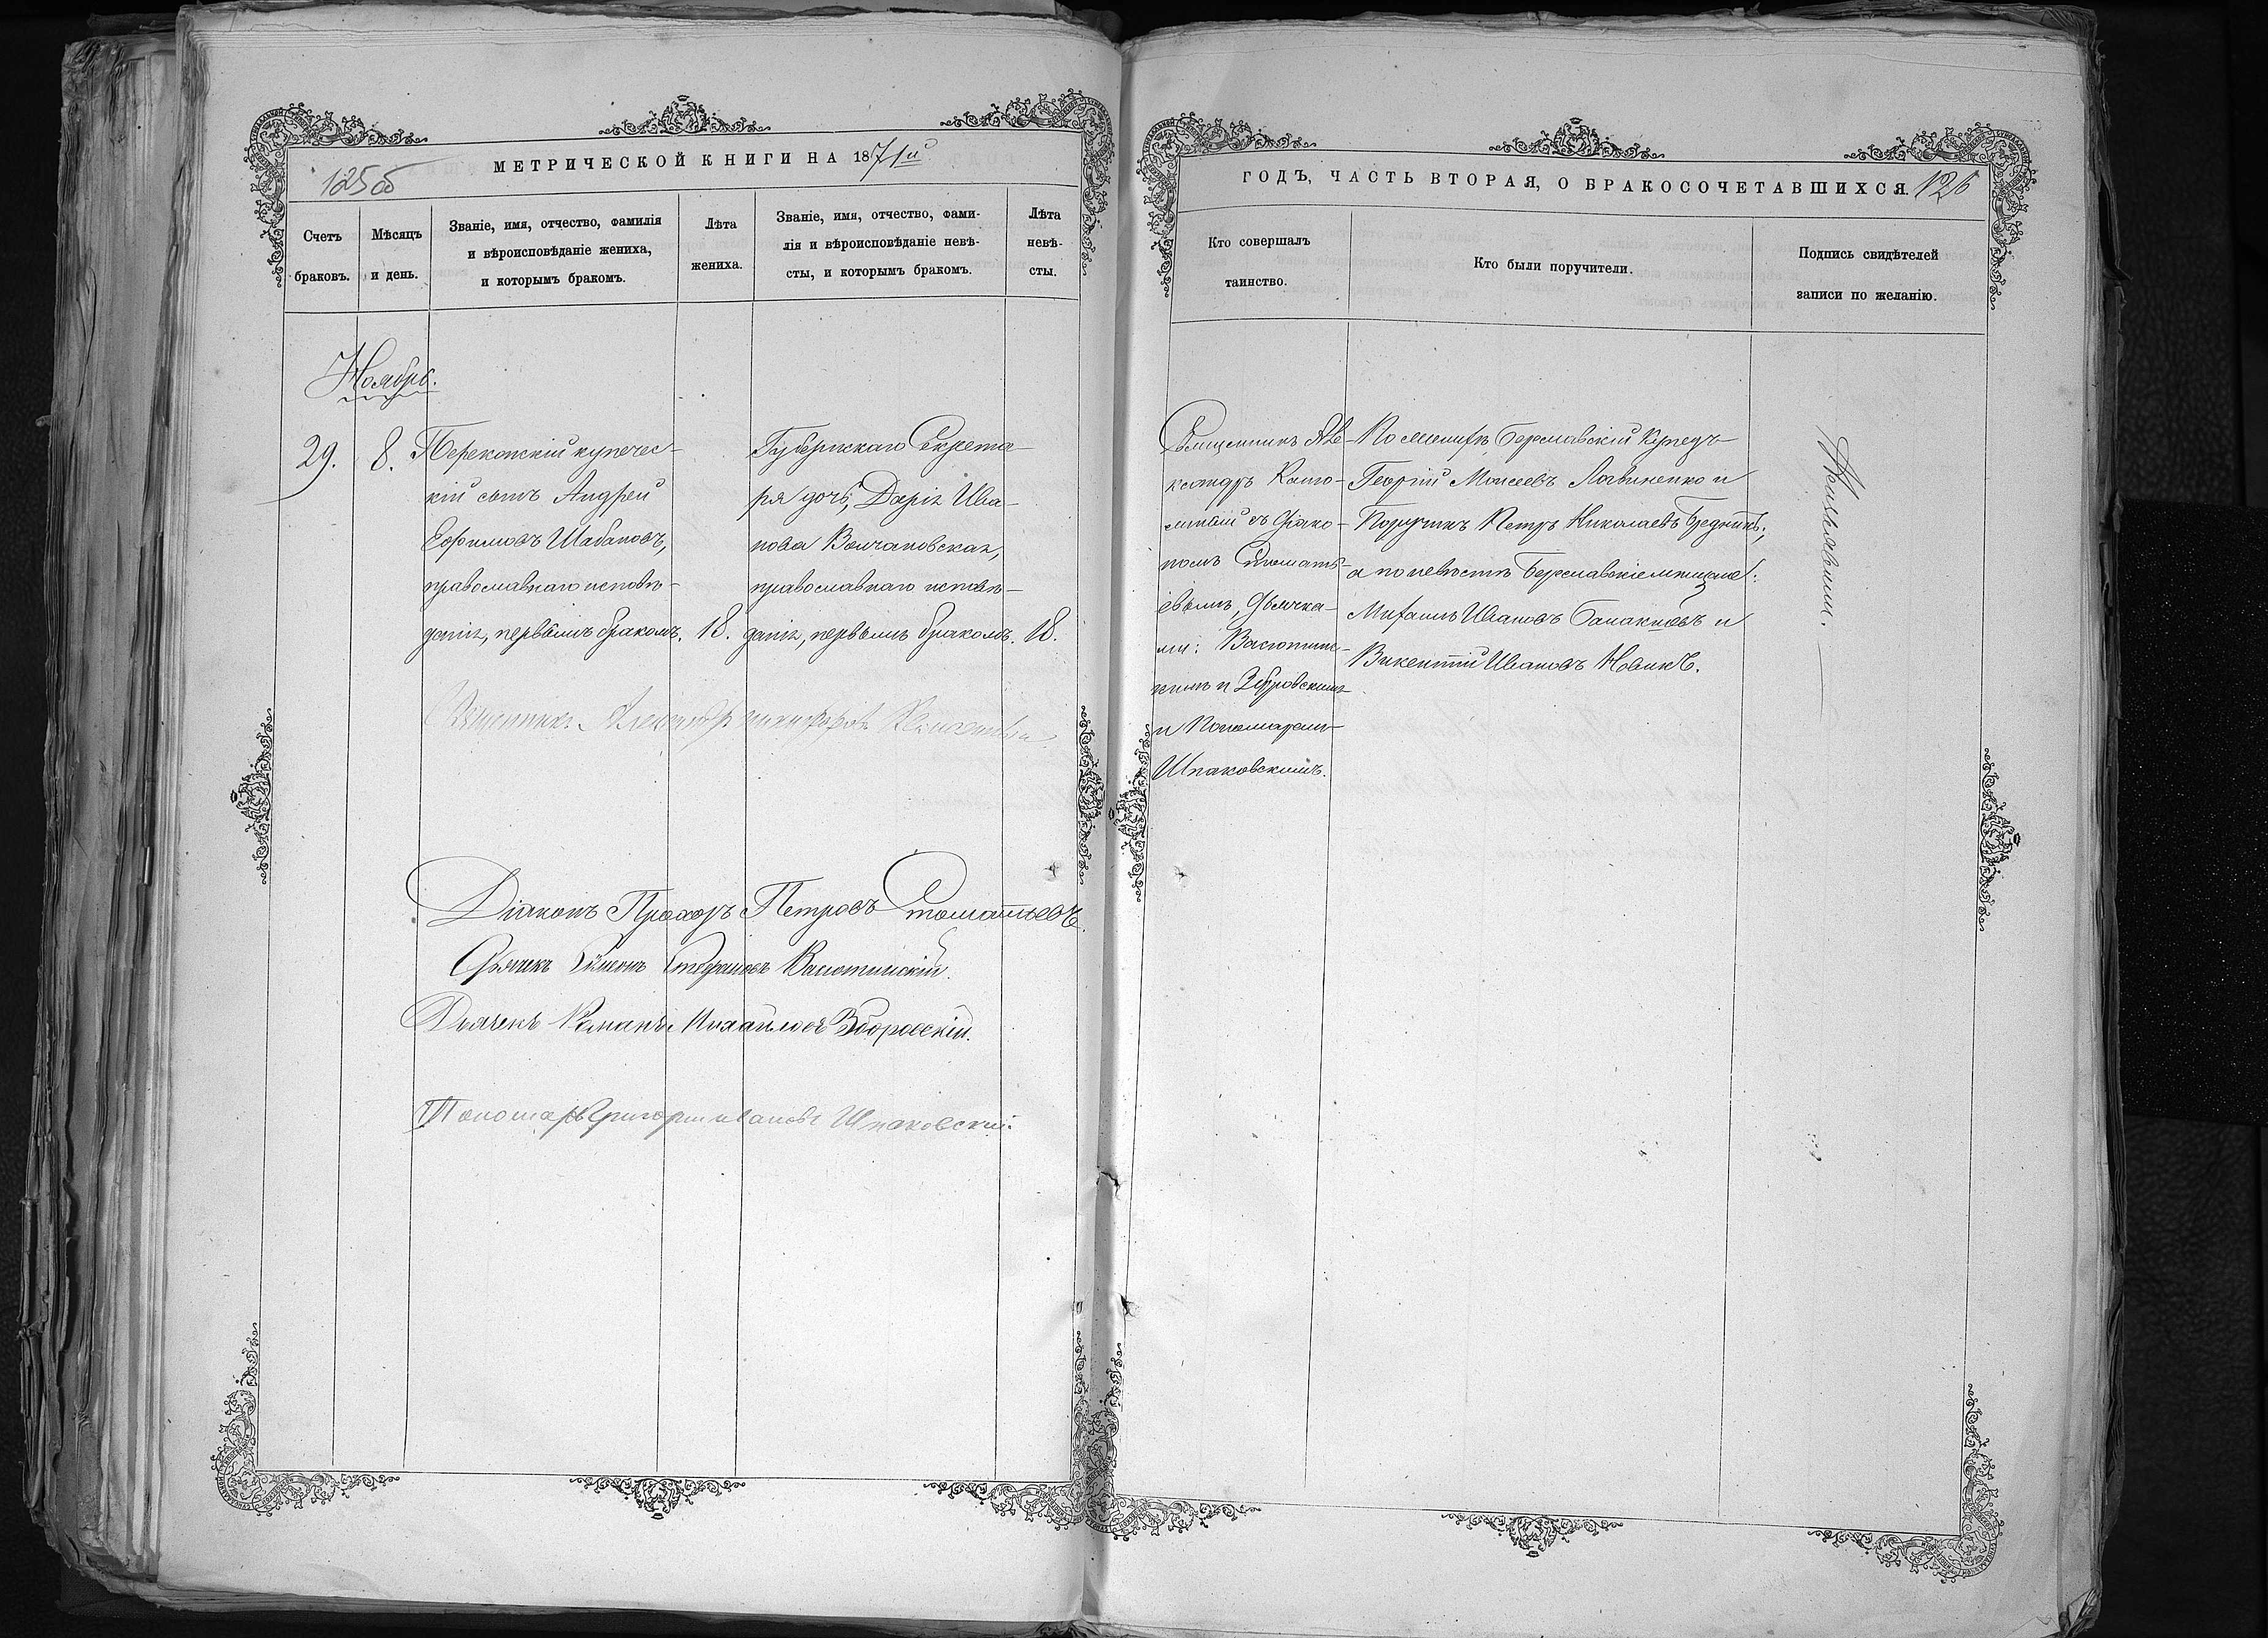 125об
МЕТРИЧЕСКОЙ КНИГИ НА 1871й
Счетъ браковъ.
Мѣсяцъ и день.
Званіе, имя, отчество, фамилія
и вѣроисповѣданіе жениха,
и которымъ бракомъ.
Лѣта жениха.
Званіе, имя, отчество, фами-
лія и вѣроисповѣданіе невѣ-
сты, и которымъ бракомъ.
Лѣта
невѣ-
сты.
Ноябрь.
29.
8.
Перекопскій купечес-
кій сынъ Андрей
Ефимовъ Шабановъ,
православнаго исповѣ-
данія, первымъ бракомъ.
18.
Губернскаго Секрета-
ря дочь, Дарія Ива-
нова Волчановская,
православнаго исповѣ-
данія, первымъ бракомъ.
18.
Священникъ Александръ
Діаконъ Прохоръ Петровъ Стоматьевъ.
Дьячекъ Симеонъ Стефановъ Васютинскій.
Дьячекъ Романъ Михайловъ Зборовскій.
Пономарь Григорій Ивановъ Шпаковскій.
ГОДЪ, ЧАСТЬ ВТОРАЯ, О БРАКОСОЧЕТАВШИХСЯ.
126
Кто совершалъ
таинство.
Кто были поручители.
Подпись свидѣтелей
записи по желанію.
Священникъ Але-
ксандръ
съ Діако-
номъ Стомать-
евымъ, Дьячка-
ми: Васютинс-
кимъ и Зборовскимъ
и Пономаремъ
Шпаковскимъ.
По женихѣ Бериславскій Купецъ
Георгій Моисеевъ Логвиненко и
Поручикъ Петръ Николаевъ
а по невѣстѣ Бериславскіе мѣщане:
Михаилъ Ивановъ и
Викентій Ивановъ Новикъ.